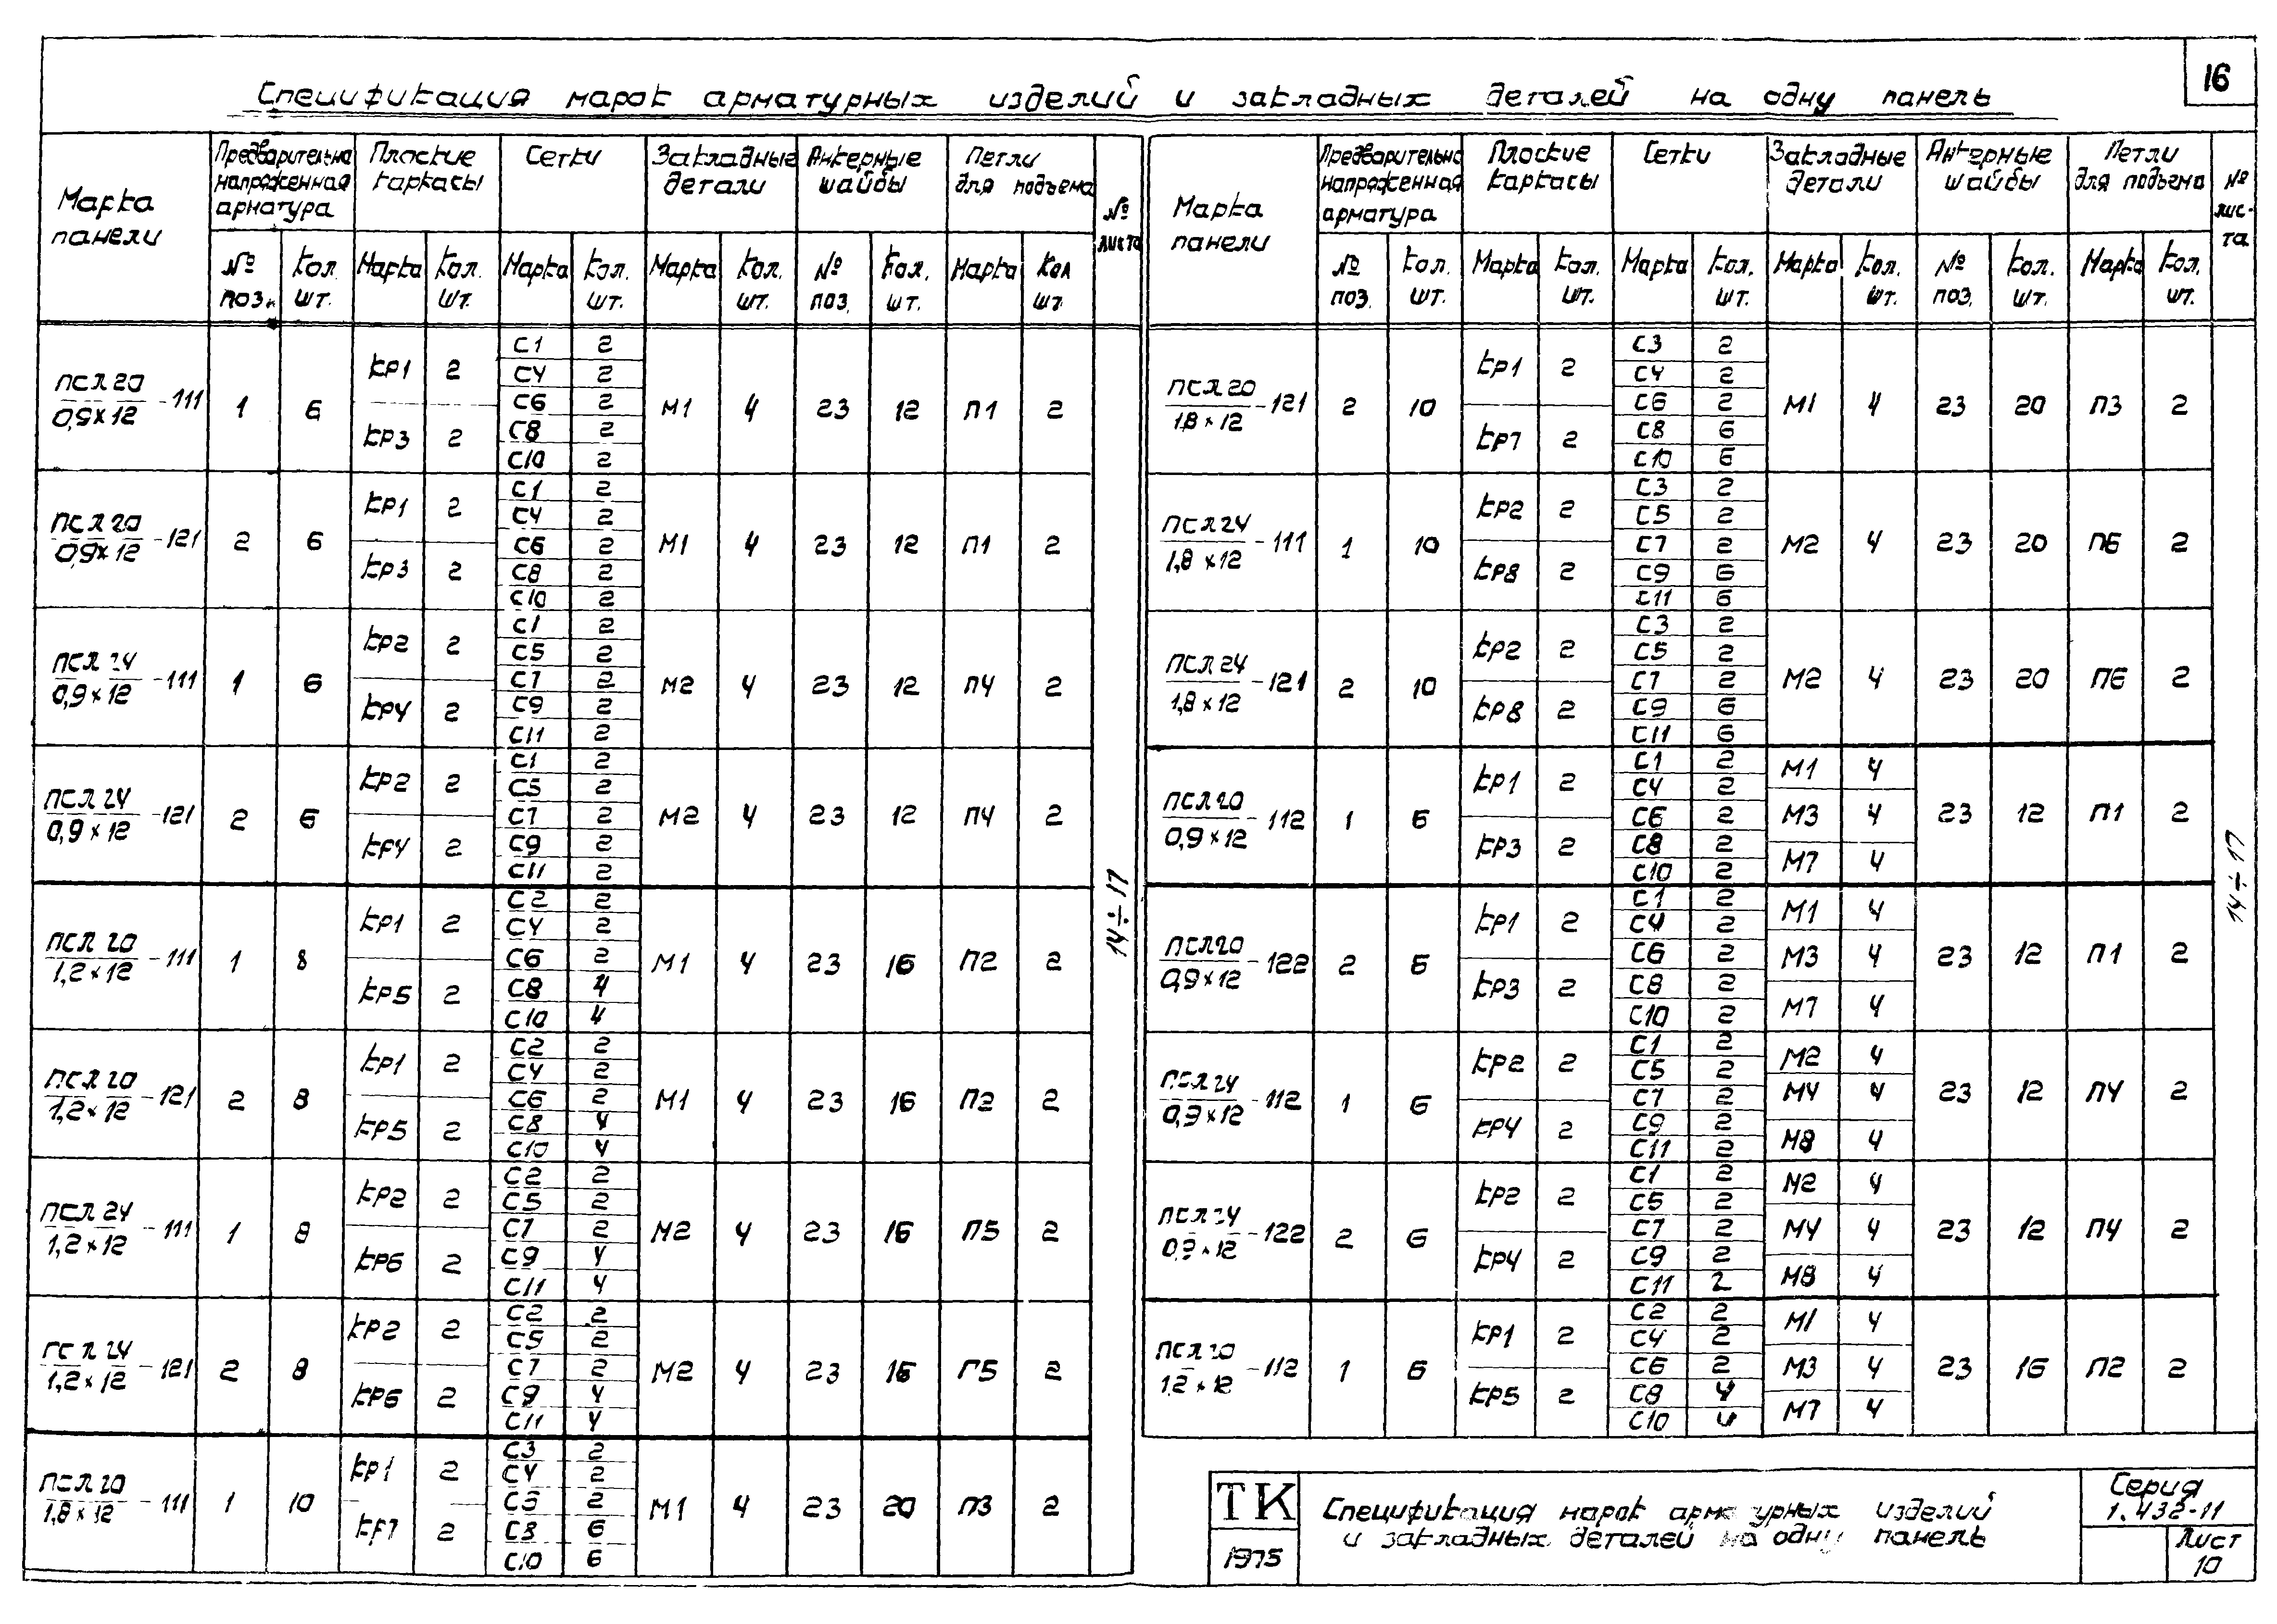 16
Спецификация марок арматурных изделий и закладных деталей на одну панель
Марка панели | Предварительно напряженная арматура | Плоские каркасы | Сетки | Закладные детали | Анкерные шайбы | Петли для подъема | № листа
№ поз. | Кол. шт. | Марка | Кол. шт. | Марка | Кол. шт. | Марка | Кол. шт. | № поз. | Кол. шт. | Марка | Кол шт.
ПСЛ20/0,9×12-111 | 1 | 6 | КР1 2 | КР3 2 | С1 2 | С4 2 | С6 2 | С8 2 | С10 2 | М1 | 4 | 23 | 12 | П1 | 2
ПСЛ20/0,9×12-121 | 2 | 6 | КР1 2 | КР3 2 | С1 2 | С4 2 | С6 2 | С8 2 | С10 2 | М1 | 4 | 23 | 12 | П1 | 2
ПСЛ24/0,9×12-111 | 1 | 6 | КР2 2 | КР4 2 | С1 2 | С5 2 | С7 2 | С9 2 | С11 2 | М2 | 4 | 23 | 12 | П4 | 2
ПСЛ24/0,9×12-121 | 2 | 6 | КР2 2 | КР4 2 | С1 2 | С5 2 | С7 2 | С9 2 | С11 2 | М2 | 4 | 23 | 12 | П4 | 2
ПСЛ20/1,2×12-111 | 1 | 8 | КР1 2 | КР5 2 | С2 2 | С4 2 | С6 2 | С8 4 | С10 4 | М1 | 4 | 23 | 16 | П2 | 2
ПСЛ20/1,2×12-121 | 2 | 8 | КР1 2 | КР5 2 | С2 2 | С4 2 | С6 2 | С8 4 | С10 4 | М1 | 4 | 23 | 16 | П2 | 2
ПСЛ24/1,2×12-111 | 1 | 8 | КР2 2 | КР6 2 | С2 2 | С5 2 | С7 2 | С9 4 | С11 4 | М2 | 4 | 23 | 16 | П5 | 2
ПСЛ24/1,2×12-121 | 2 | 8 | КР2 2 | КР6 2 | С2 2 | С5 2 | С7 2 | С9 4 | С11 4 | М2 | 4 | 23 | 16 | П5 | 2
ПСЛ20/1,8×12-111 | 1 | 10 | КР1 2 | КР7 2 | С3 2 | С4 2 | С6 2 | С8 6 | С10 6 | М1 | 4 | 23 | 20 | П3 | 2
14÷17
Марка панели | Предварительно напряженная арматура | Плоские каркасы | Сетки | Закладные детали | Анкерные шайбы | Петли для подъема | № лис-та
№ поз. | Кол. шт. | Марка | Кол. шт. | Марка | Кол. шт. | Марка | Кол. шт. | № поз. | Кол. шт. | Марка | Кол. шт.
ПСЛ20/1,8×12-121 | 2 | 10 | КР1 2 | КР7 2 | С3 2 | С4 2 | С6 2 | С8 6 | С10 6 | М1 | 4 | 23 | 20 | П3 | 2
ПСЛ24/1,8×12-111 | 1 | 10 | КР2 2 | КР8 2 | С3 2 | С5 2 | С7 2 | С9 6 | С11 6 | М2 | 4 | 23 | 20 | П6 | 2
ПСЛ24/1,8×12-121 | 2 | 10 | КР2 2 | КР8 2 | С3 2 | С5 2 | С7 2 | С9 6 | С11 6 | М2 | 4 | 23 | 20 | П6 | 2
ПСЛ20/0,9×12-112 | 1 | 6 | КР1 2 | КР3 2 | С1 2 | С4 2 | С6 2 | С8 2 | С10 2 | М1 4 | М3 4 | М7 4 | 23 | 12 | П1 | 2
ПСЛ20/0,9×12-122 | 2 | 6 | КР1 2 | КР3 2 | С1 2 | С4 2 | С6 2 | С8 2 | С10 2 | М1 4 | М3 4 | М7 4 | 23 | 12 | П1 | 2
ПСЛ24/0,9×12-112 | 1 | 6 | КР2 2 | КР4 2 | С1 2 | С5 2 | С7 2 | С9 2 | С11 2 | М2 4 | М4 4 | М8 4 | 23 | 12 | П4 | 2
ПСЛ24/0,9×12-122 | 2 | 6 | КР2 2 | КР4 2 | С1 2 | С5 2 | С7 2 | С9 2 | С11 2 | М2 4 | М4 4 | М8 4 | 23 | 12 | П4 | 2
ПСЛ20/1,2×12-112 | 1 | 6 | КР1 2 | КР5 2 | С2 2 | С4 2 | С6 2 | С8 4 | С10 4 | М1 4 | М3 4 | М7 4 | 23 | 16 | П2 | 2
14÷17
ТК
1975
Спецификация марок арматурных изделий
и закладных деталей на одну панель
Серия
1.432-11
Лист
10